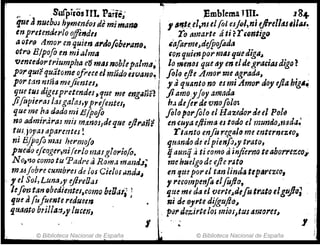 Suspiros III. Parte,
que à nuebos hymeneos dé mi mano
en pretenderlo offendes
a otro Amor en quien ardo soberano,
otro Esposo en mi alma
vencedor triumpha có mas noble palma,
porque quié me ofrece el mũdo es vano,
por tan niña me sientes,
que tus digespretendes, que me engañe?
si supieras las galas, y presentes,
que me ha dado mi Esposo
no admiraràs mis manos, de que estrañes
tus joyas aparentes!
ni Esposo mas hermoso
puedo escoger, ni serlo mas glorioso.
No, no como tu Padre à Roma manda,
mas sobre cumbres de los Cielos anda,
y el Sol, Luna, y estrellas
le son tan obedientes, como bellas,
que à su fuente reducen
quanto brillan, y lucen,
Emblema III. 184
y ante el, ni el sol es sol, ni estrellas ellas.
Yo amarte à ti? Contigo
casarme, desposada
con quien por mas que diga,
lo menos que ay en el de gracias digo?
solo este Amor me agrada,
y à quanto no es mi Amor doy esta higa,
si amo y soy amada
ha de ser de uno solo.
solo por solo el Hazedor del Polo
en cuya estima es todo el mundo, nada.
Y tanto en su regalo me enternezco,
quando de el pienso, y trato,
q̃ aunq̃ à ti como à infierno te aborrezco,
me huelgo de este rato
en que por el tan linda te parezco,
y recompensa el susto,
que me da el verte, de su trato el gusto;
ni de oyrte disgusto,
por dezirte los mios, tus amores,
y
© Biblioteca Nacional de España
© Biblioteca Nacional de España